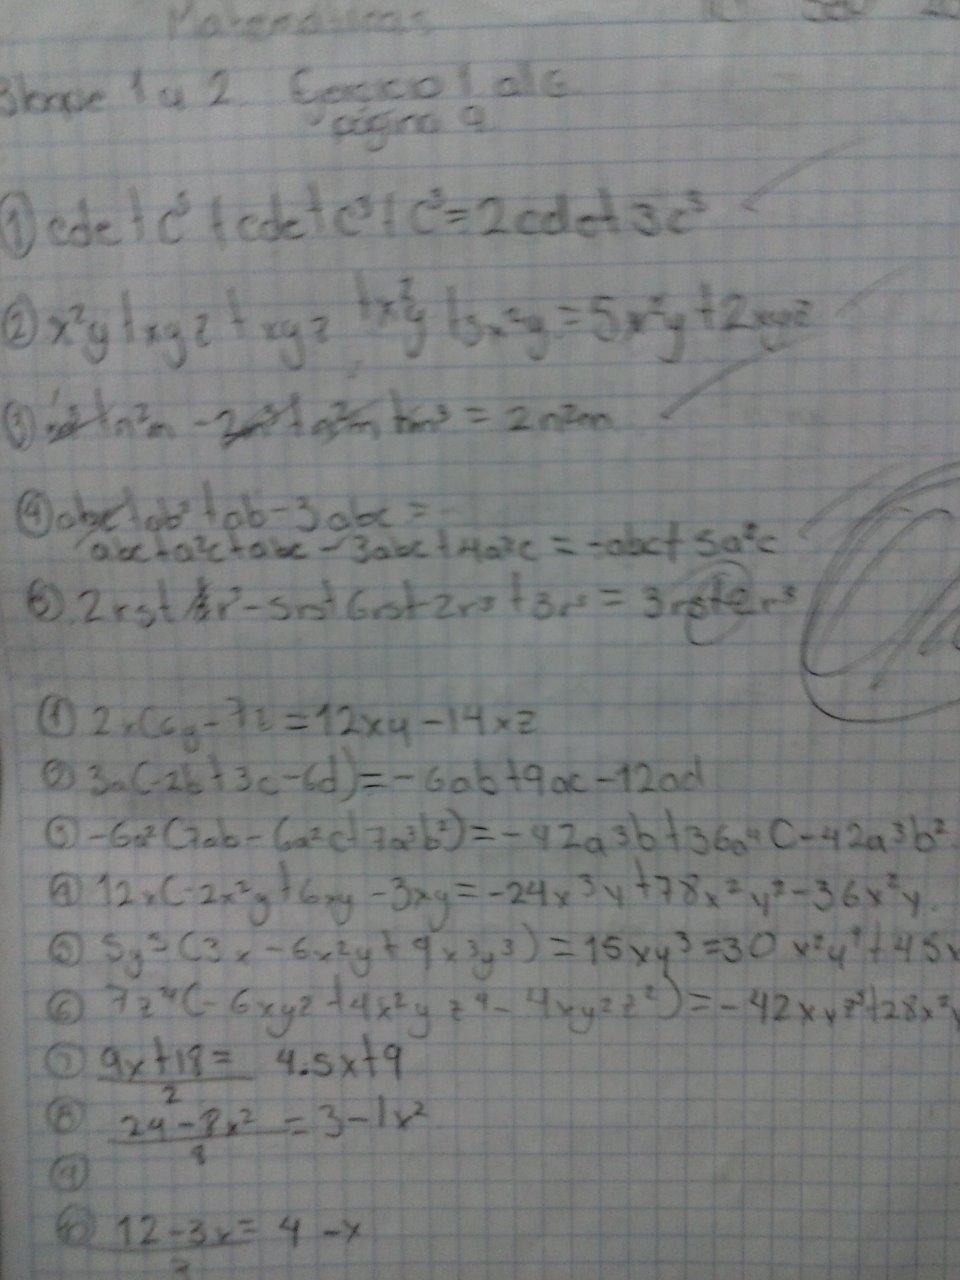 Matemáticas
Bloque 1 y 2 Ejercicio 1 al 6
página 9
① cde + c³ + cde + c³ + c³ = 2cde + 3c³
② x²y + xyz + xyz + x²y + 3x²y = 5x²y + 2xyz
③ + n²m - 2 + n²m + = 2n²m
④ abc + ab² + ab - 3abc =
abc + a²c + abc - 3abc + 4a²c = -abc + 5a²c
⑤ 2rst + r³ - 5rst + 6rst - 2r³ + 3r³ = 3rst + 2r³
① 2x(6y - 7z = 12xy - 14xz
② 3a(-2b + 3c - 6d) = -6ab + 9ac - 12ad
③ -6a²(7ab - 6a²c + 7a³b²) = -42a³b + 36a⁴C - 42a³b²
④ 12x(-2x²y + 6xy - 3xy = -24x³y + 78x²y² - 36x²y.
⑤ 5y³(3x - 6x²y + 9x³y³) = 15xy³ = 30x²y⁴ + 45x
⑥ 7z⁴(-6xyz + 4x²yz⁴ - 4xyzz²) = -42xyz⁵ + 28x²y
⑦ 9x + 18 = 4.5x + 9
2
⑧ 24 - 8x² = 3 - 1x²
8
⑨
⑩ 12 - 3x = 4 - x
3